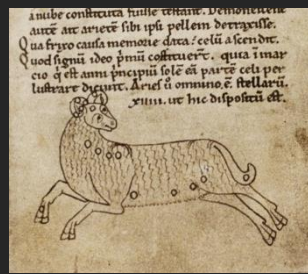 a nube constituta fuisse testant. Demonstrene
autē ait arietē sibi ipsi pellem detraxisse.
Qua frixo causa memorie data: celū ascendit.
Quod signū ideo p̄mū costituert. quia ī mar
cio q̄ est anni p̄ncipiū solē eā partē celi per
lustrare dicunt. Aries ū omnino. ē. stellarū.
xiiii. ut hic dispositū est.